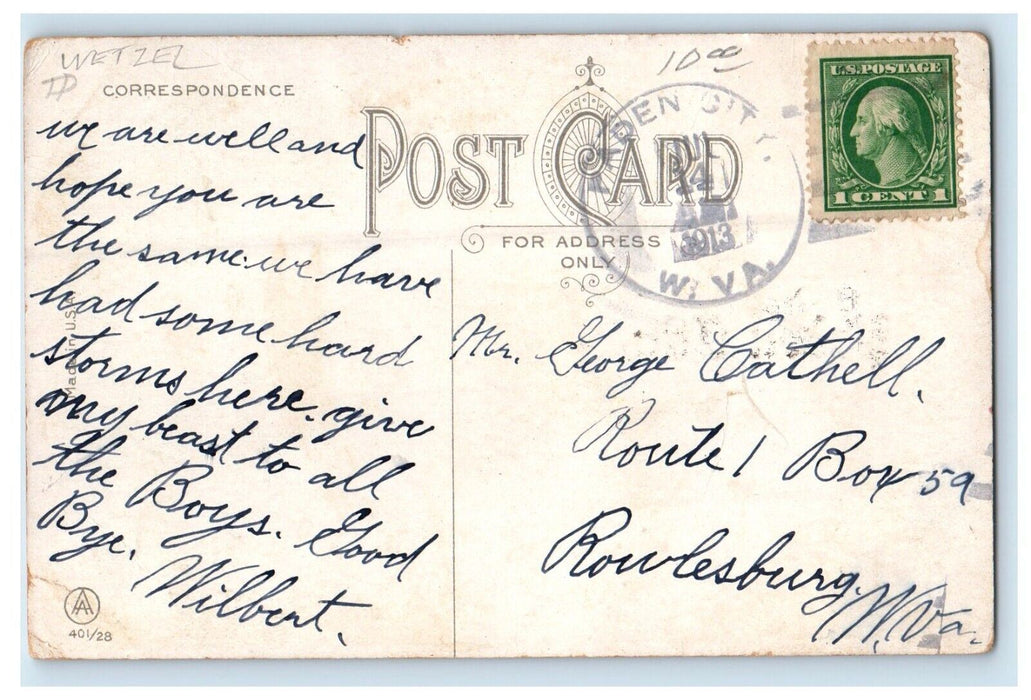 WETZEL
10.00
CORRESPONDENCE
POST CARD
FOR ADDRESS
ONLY
U.S. POSTAGE
1 CENT 1
DEN CITY.
14
1913
W. VA.
we are well and
hope you are
the same. we have
had some hard
storms here. give
my beast to all
the Boys. Good
Bye.
Wilbert.
Made in U.S.A.
Mr. George Cathell.
Route 1 Box 59
Rowlesburg,
W. Va.
AA
401/28